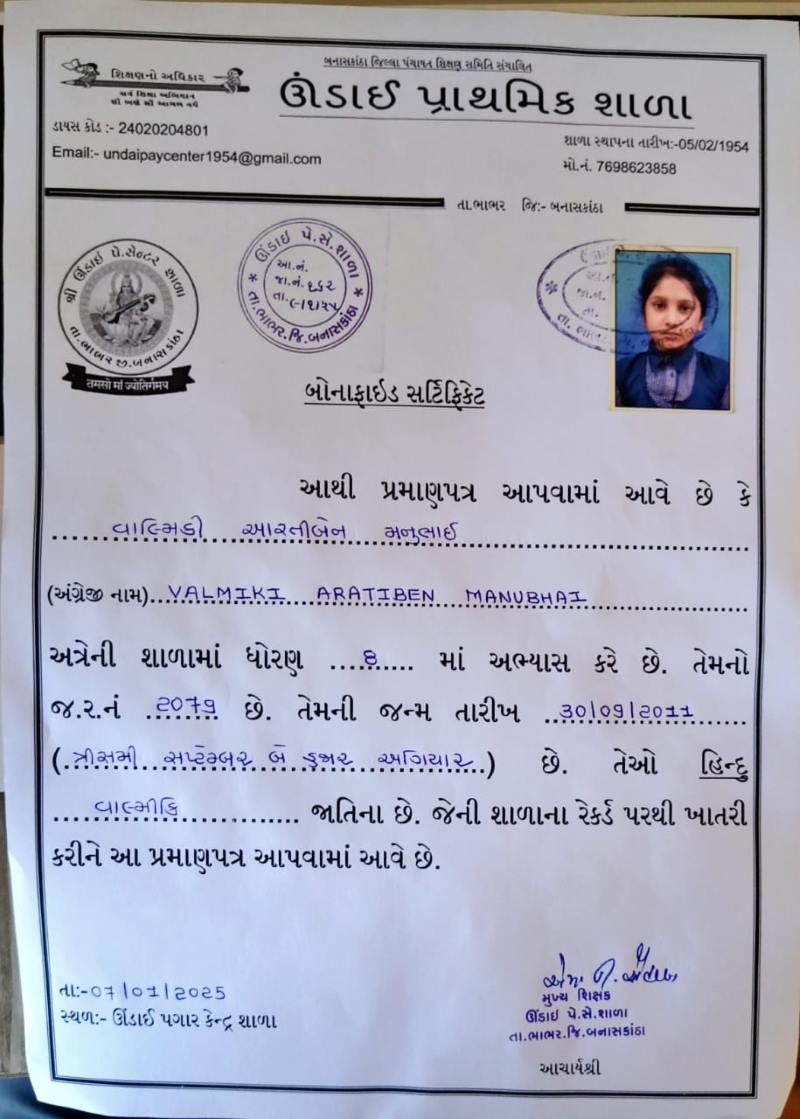 બનાસકાંઠા જિલ્લા પંચાયત શિક્ષણ સમિતિ સંચાલિત
શિક્ષણનો અધિકાર
સર્વ શિક્ષા અભિયાન
સૌ ભણે સૌ આગળ વધે
ઊંડાઈ પ્રાથમિક શાળા
ડાયસ કોડ :- 24020204801
શાળા સ્થાપના તારીખ:-05/02/1954
Email:- undaipaycenter1954@gmail.com
મો.નં. 7698623858
તા.ભાભર જિ:- બનાસકાંઠા
શ્રી ઊંડાઈ પે.સેન્ટર શાળા
તા.ભાભર જી.બનાસકાંઠા
તમસો માઁ જ્યોતિર્ગમય
ઊંડાઇ પે.સે.શાળા
આ.નં.
જા.નં. ૧૬૨
તા.
તા.ભાભર.જિ.બનાસકાંઠા
આ.નં.
જા.નં.
તા.
બોનાફાઇડ સર્ટિફિકેટ
આથી પ્રમાણપત્ર આપવામાં આવે છે કે
વાલ્મિકી આરતીબેન મનુભાઈ
(અંગ્રેજી નામ)...VALMIKI ARATIBEN MANUBHAI
અત્રેની શાળામાં ધોરણ ....8..... માં અભ્યાસ કરે છે. તેમનો
જ.ર.નં ..2079.. છે. તેમની જન્મ તારીખ ..30/09/2011......
(.ત્રીસમી સપ્ટેમ્બર બે હજાર અગિયાર.) છે. તેઓ હિન્દુ
.....વાલ્મીકિ............... જાતિના છે. જેની શાળાના રેકર્ડ પરથી ખાતરી
કરીને આ પ્રમાણપત્ર આપવામાં આવે છે.
તા:-07/01/2025
સ્થળ:- ઊંડાઈ પગાર કેન્દ્ર શાળા
મુખ્ય શિક્ષક
ઊંડાઇ પે.સે.શાળા
તા.ભાભર.જિ.બનાસકાંઠા
આચાર્યશ્રી